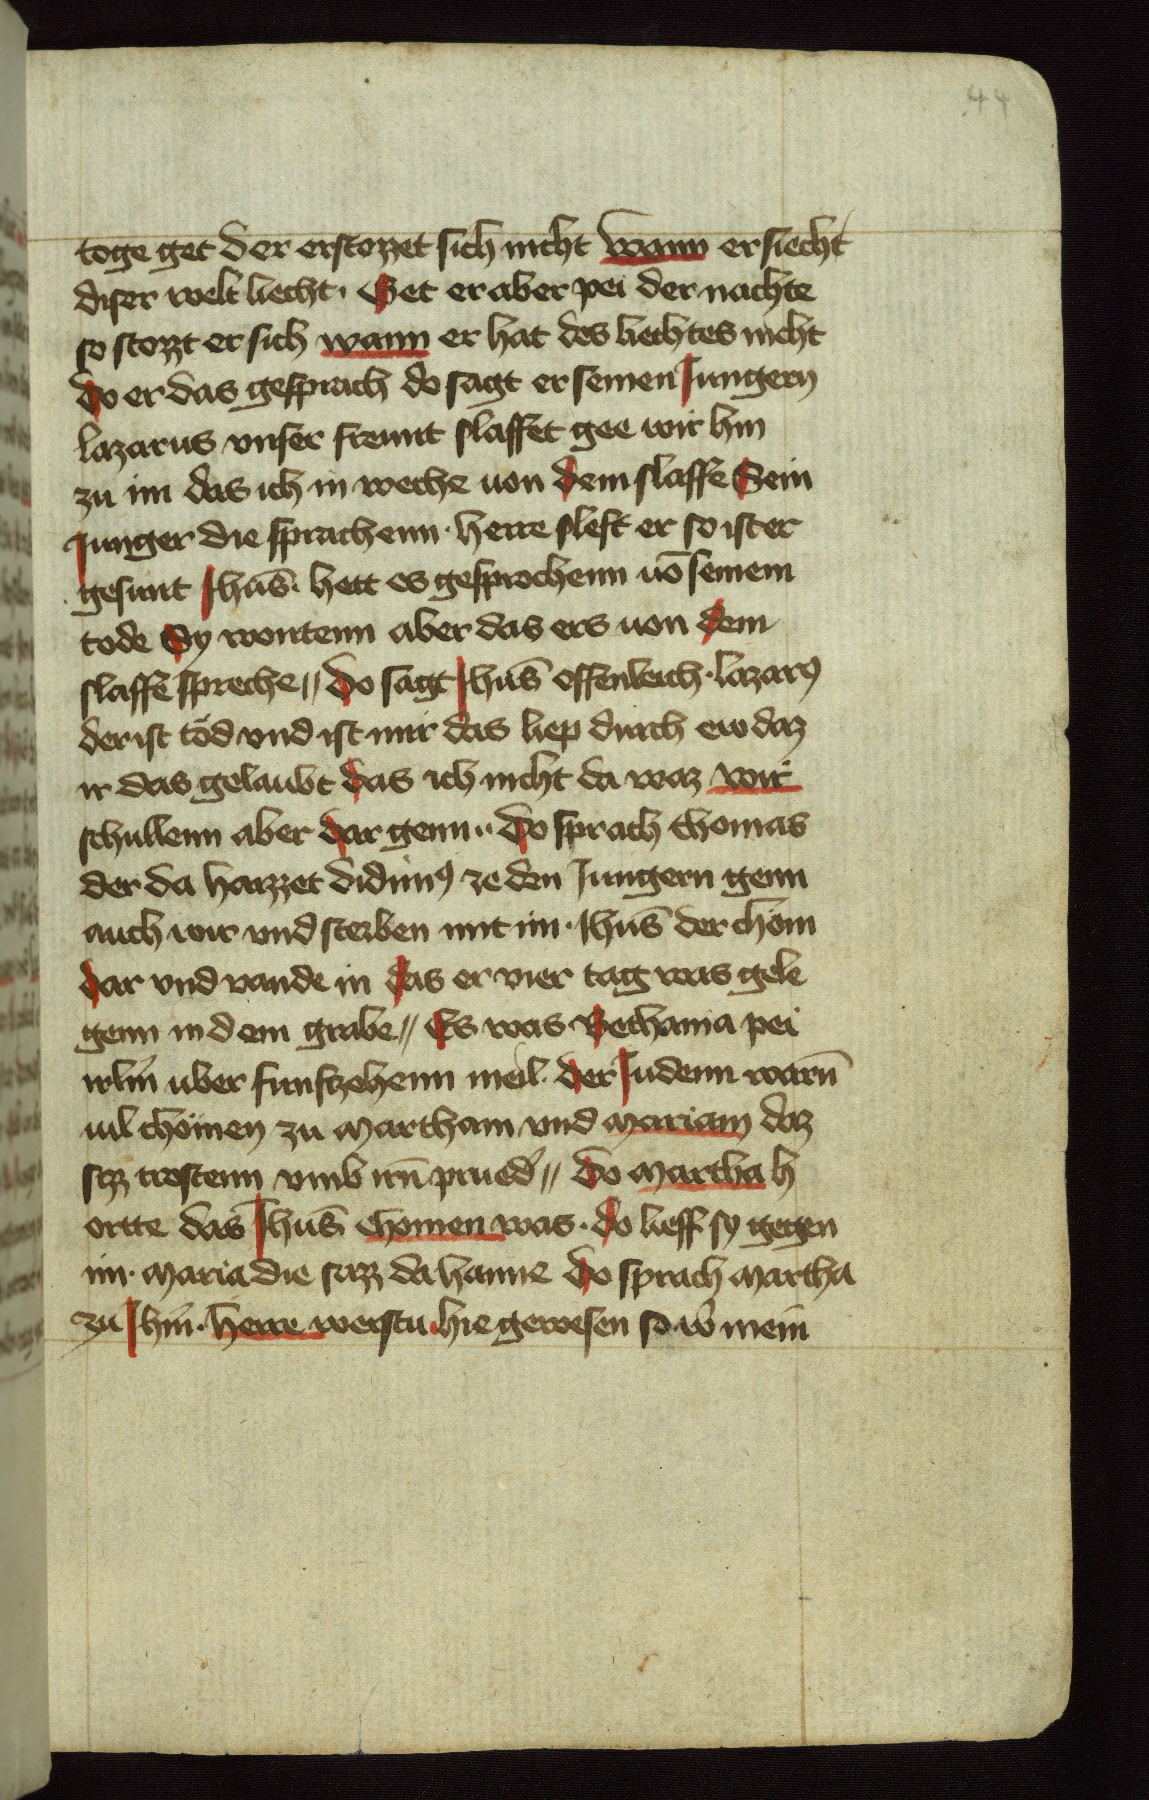 44
toge get der erstozzet sich nicht wann er siecht
diser welt liecht. Get er aber pei der nachte
so stozzt er sich wann er hat des liechtes nicht
do er das gesprach do sagt er seinen Jungern
lazarus vnser freunt slaffet gee wir hin
zu im das ich in weche uon dem slaffe Sein
Junger die sprachenn. herre sleft er so ist er
gesunt Jhus̄. hett es gesprochenn uō seinem
tode Sy wontenn aber das ers uon dem
slaffe spreche // do sagt Jhus̄ offenleich. lazarꝰ
der ist tod vnd ist mir das liep durch ew daz
ir das gelaubt das ich nicht da waz wir
schullenn aber dar genn.. do sprach thomas
der da hazzet didimꝰ ze den Jungern genn
auch wir vnd sterben mit im. Jhus̄ der chom
dar vnd vande in das er vier tag was gele
genn in dem grabe // Es was Bethania pei
irlm̄ uber funftzehenn meil. der Judenn warn̄
uil chomen zu Martham vnd Mariam daz
sizz trostenn vmb irn̄ prued̉ // do Martha h
ortte das Jhus̄ chomen was. do lieff sy gegen
im. Maria die sazz da haime do sprach Martha
zu Jhm̄. herre werstu hie gewesen so w̉ mein